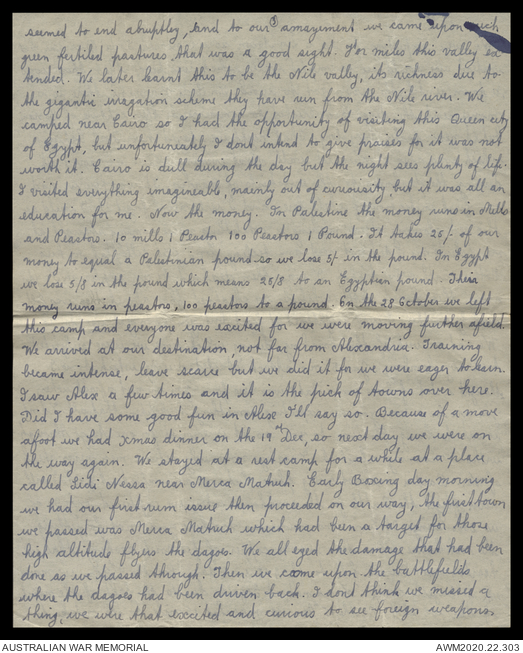 ③
seemed to end abruptley, and to our amazement we came upon such
green fertiled pastures that was a good sight. For miles this valley ex
tended. We later learnt this to be the Nile valley, its richness due to
the gigantic irragation scheme they have run from the Nile river. We
camped near Cairo so I had the opportunity of visiting this Queen city
of Egypt, but unfortuneatly I dont intend to give praises for it was not
worth it. Cairo is dull during the day but the night sees plenty of life.
I visited everything imagineable, mainly out of cureousity but it was all an
education for me. Now the money. In Palestine the money runs in Mills
and Peastors. 10 mills 1 Peastor 100 Peastors 1 Pound. It takes 25/- of our
money to equal a Palestinian pound so we lose 5/- in the pound. In Egypt
we lose 5/8 in the pound which means 25/8 to an Egyptian pound. Their
money runs in peastors, 100 peastors to a pound. On the 28 October we left
this camp and everyone was excited for we were moving further afield.
We arrived at our destination, not far from Alexandria. Training
became intense, leave scarce but we did it for we were eager to learn.
I saw Alex a few times and it is the pick of towns over here.
Did I have some good fun in Alex I'll say so. Because of a move
afoot we had xmas dinner on the 19th Dec, so next day we were on
the way again. We stayed at a rest camp for a while at a place
called Sidi Nessa near Merca Matruh. Early Boxing day morning
we had our first rum issue then proceeded on our way, the first town
we passed was Merca Matruch which had been a target for those
high altitude flyers the dagoes. We all eyed the damage that had been
done as we passed through. Then we came upon the battlefields
where the dagoes had been driven back. I dont think we missed a
thing, we were that excited and curious to see foreign weapons
AUSTRALIAN WAR MEMORIAL
AWM2020.22.303